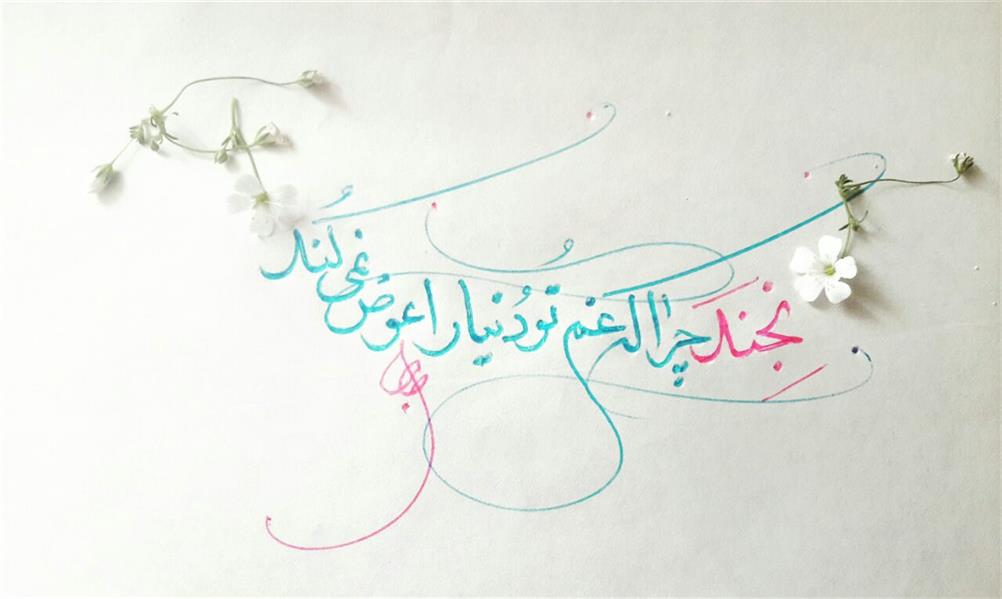 بخند چرا که غم تو دنیا را عوض نمی کند